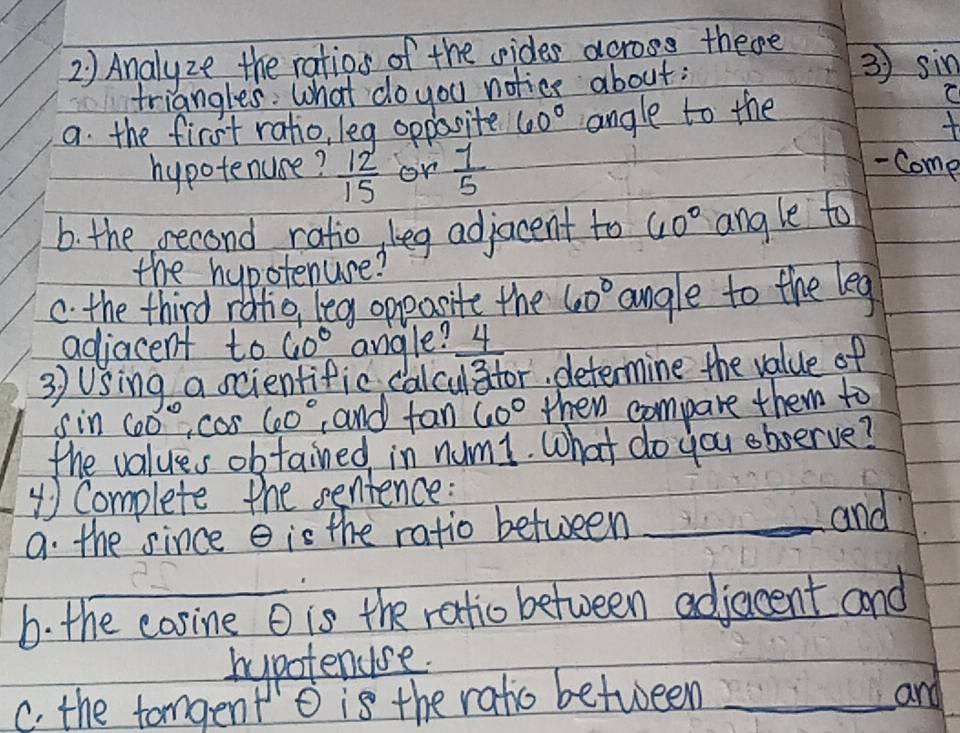 2.) Analyze the ratios of the sides across these
triangles. What do you notice about:
a. the first ratio, leg opposite 60° angle to the
hypotenuse? 12/15 or 1/5
b. the second ratio, leg adjacent to 60° angle to
the hypotenuse?
c. the third ratio, leg opposite the 60° angle to the leg
adjacent to 60° angle? 4/3
3) Using a scientific calculator. determine the value of
sin 60°, cos 60°, and tan 60° then compare them to
the values obtained in num 1. What do you observe?
4.) Complete the sentence:
a. the since θ is the ratio between ________ and
________.
b. the cosine θ is the ratio between adjacent and
hypotenuse.
c. the tangent θ is the ratio between ________ and
3) sin
- Comp